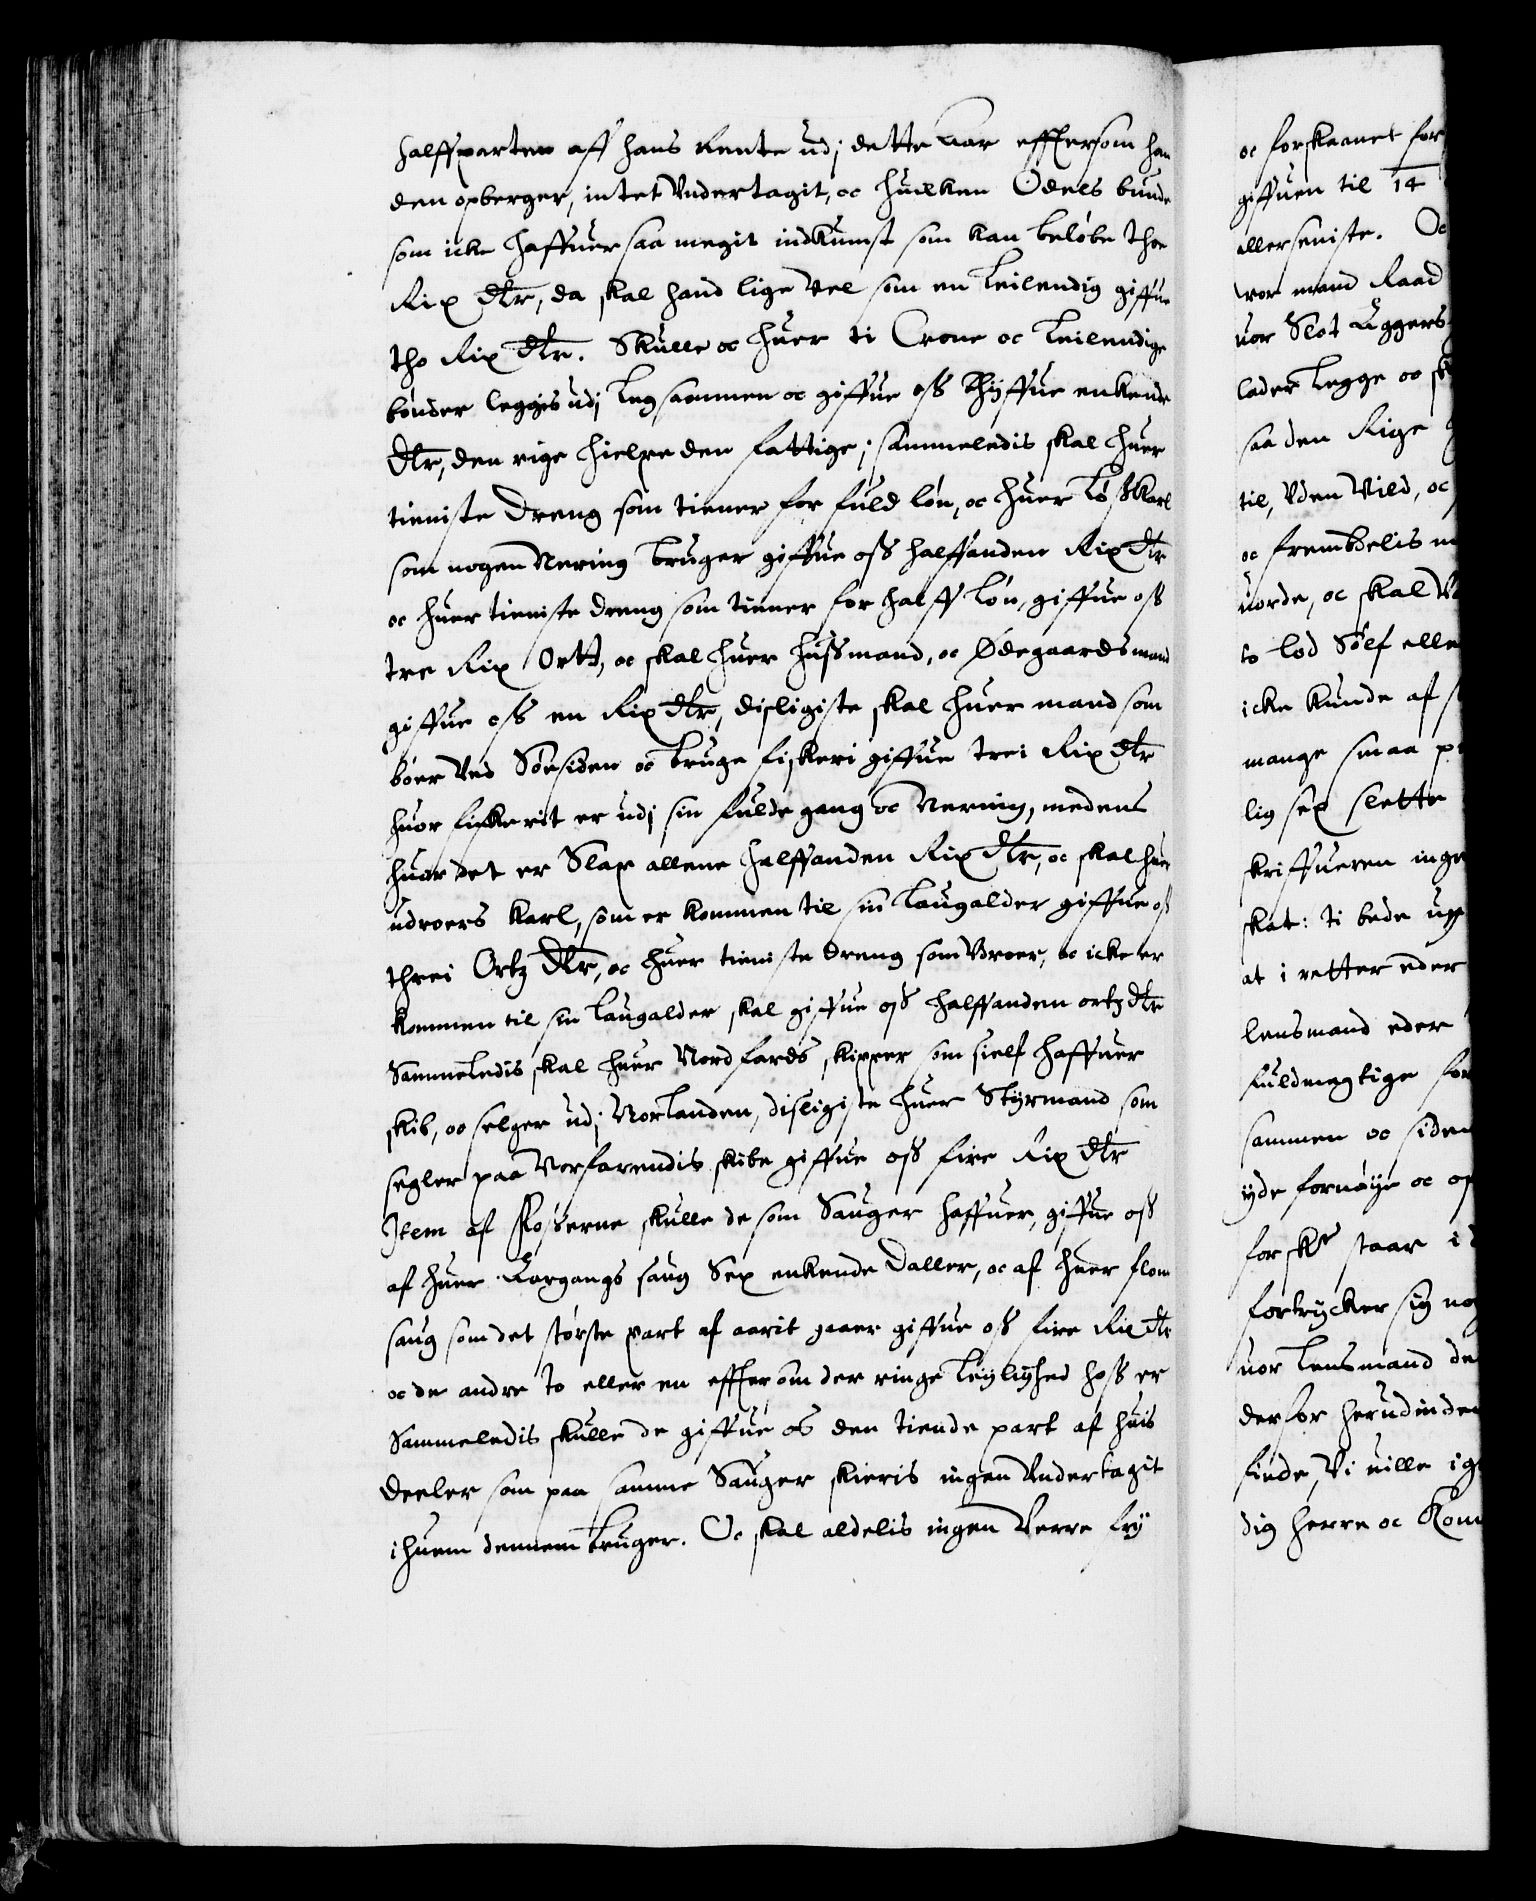 halffparten aff hans Rente udj dette Aar efftersom han
den opberger, intet Undertagit, oc huilken Odels bunde
som icke haffuer saa megit indkumst som kan beløbe thoe
Rix dlr, da skal hand lige Vel som en Leilending giffue
tho Rix dlr. Skulle oc huer ti Crone oc Leilendige
bønder leggis udj Leg sammen oc giffue oss thiffue enkende
dlr, den rige hielpe den fattige; sammeledis skal huer
tieniste dreng som tiener for fuld løn, oc huer Løsskarl
som nogen Nering bruger giffue oss halffanden Rix dlr
oc huer tieniste dreng som tiener for halff løn, giffue oss
tre Rix Ortt, oc skal huer hussmand, oc Ødegaardsmand
giffue oss en Rix dlr, disligiste skal huer mand som
boer Ved Søesiden oc bruge fiskeri giffue trei Rix dlr
huor fiskerit er udj sin fulde gang oc Nering, medens
huor det er Slap allene halffanden Rix dlr, oc skal huer
udroers karl, som er kommen til sin laugalder giffue oss
threi Ortz dlr, oc huer tieniste dreng som Vdroer, oc icke er
kommen til sin laugalder skal giffue oss halffanden ortz dlr
Sammeledis skal huer Nordfards skipper som sielf haffuer
skib, oc selger udj Norlanden, disligiste huer Styrmand som
segler paa Norfarendis skibe giffue oss fire Rix dlr
Item af Fosserne skulle de som Sauger haffuer, giffue oss
af huer Aargangs saug Sex enkende Daller, oc af huer flom
saug som det største part af aarit gaaer giffue oss fire Rix dlr
oc de andre to eller en efftersom der ringe Leylighed hoss er
Sammeledis skulle de giffue os den tiende part af huis
deeler som paa samme Sauger skieris ingen Undertagit
i huem dennem bruger. Oc skal aldelis ingen Verre fry
oc forskaanet for
giffuen til 14
allerseniste. Oc
vor mand Raad
uor Slot Aggers
lader Legge oc sk
saa den Rige
til, Uden Vild, oc
oc frembdelis
uorde, oc skal
to lod Sølf elle
icke kunde af
mange smaa
lig sex slette
skriffueren inge
skat: ti bede
at i retter eder
lensmand eder
fuldmegtige for
sammen oc siden
yde, fornøye oc
for skt staar i
fortrycker sig nog
uor Lensmand de
derfor herudinden
finde, Vi uille
dig herre oc Kon